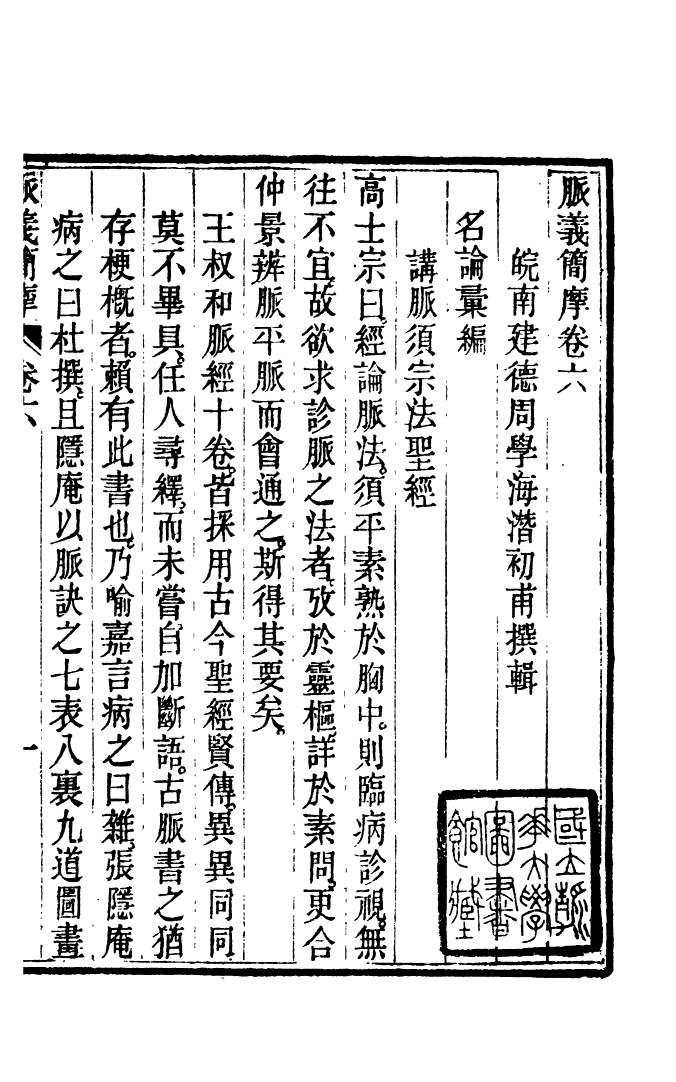 脈義簡摩卷六
皖南建德周學海潛初甫撰輯
名論彙編
講脈須宗法聖經
高士宗曰經論脈法須平素熟於胸中則臨病診視無
往不宜故欲求診脈之法者攷於靈樞詳於素問更合
仲景辨脈平脈而會通之斯得其要矣
王叔和脈經十卷皆採用古今聖經賢傳異異同同
莫不畢具任人尋繹而未嘗自加斷語古脈書之猶
存梗概者賴有此書也乃喻嘉言病之曰雜張隱庵
病之曰杜撰且隱庵以脈訣之七表八裏九道圖畫
脈義簡摩 卷六 一
國立北平大學圖書館藏